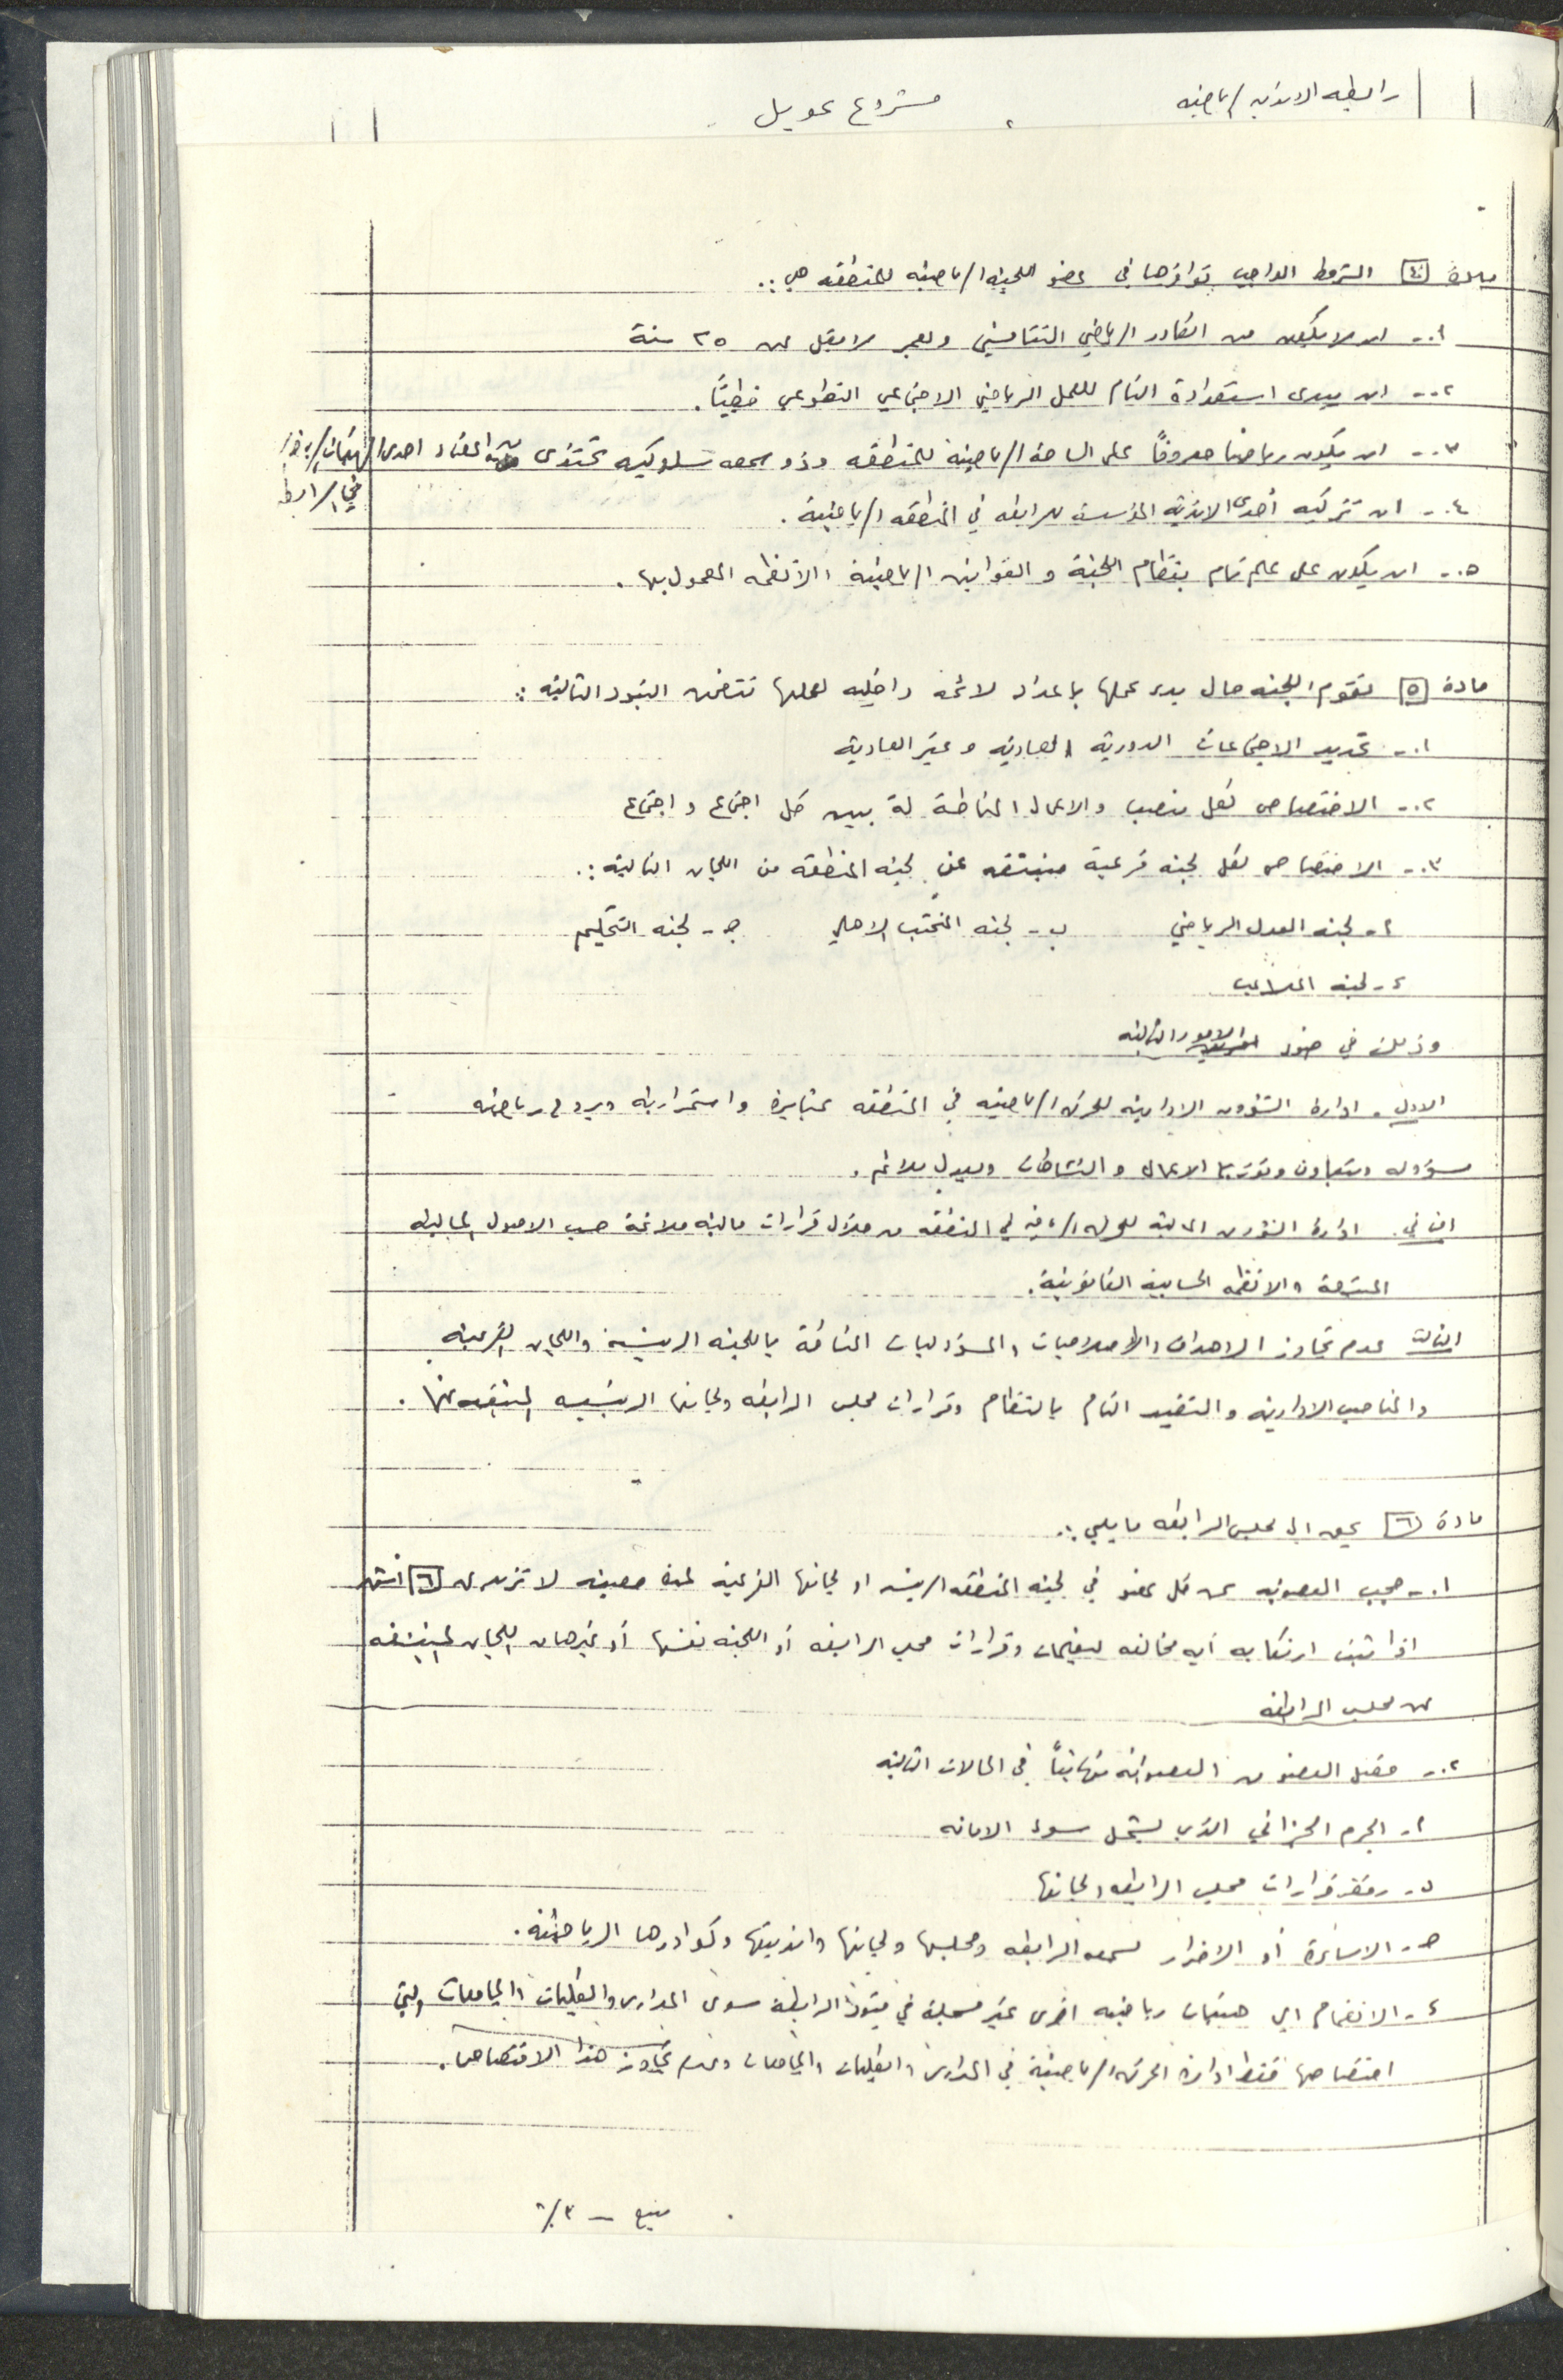 رابطة الاندية الرياضية
مشروع تحويل
مادة [٤] الشروط الواجب توافرها في عضو اللجنة الرياضية للمنطقة هي :.
١.- ان لا يكون من الكادر الرياضي التنافسي وبعمر لا يقل عن ٢٥ سنة
٢.- ان يبدى استعدادة التام للعمل الرياضي الاجتماعي التطوعي خطياً.
٣.- ان يكون رياضيا معروفاً على الساحة الرياضية للمنطقه وذو سمعه سلوكيه تحتذى من اعضاء احدى الهيئات
في الرابطة
٤.- ان تزكيه أحدى الاندية المؤسسة للرابطه في المنطقه الرياضية.
٥.- ان يكون على علم تام بنظام اللجنة و القوانين الرياضية والأنظمه المعمول بها.
مادة [٥] تقوم اللجنه حال بدء عملها باعداد لائحه داخليه لعملها تتضمن البنود التاليه :.
١.- تحديد الاجتماعات الدورية العاديه و غير العادية
٢.- الاختصاص لكل منصب والاعمال المناطة لة بين كل اجتماع و اجتماع
٣.- الاختصاص لكل لجنه فرعية منبثقه عن لجنه المنطقه من اللجان التالية :.
أ- لجنه العدل الرياضي ب- لجنه المنتخب الاهلي جـ- لجنه التحكيم
د- لجنه الملاعب
وذلك في ضوء الامور التاليه
الاول. ادارة الشؤون الادارية للحركه الرياضيه في المنطقه بمثابرة واستمرارية وبروح رياضيه
مسؤوله وبتعاون وتوزيع الاعمال والنشاطات وبعدل ملائم.
الثاني. ادارة الشؤون المالية للحركه الرياضيه في المنطقه من خلال قرارات ماليه ملائمة حسب الاصول المالية
المتبعة والانظمه الحسابية القانونية.
الثالث عدم تجاوز الاهداف والصلاحيات والمسؤوليات المناطة باللجنه الرئيسيه واللجان الفرعيه
والمناصب الاداريه والتقيد التام بالنظام وقرارات مجلس الرابطه ولجانها الرئيسيه المنبثقه عنها.
مادة [٦] يحق الى مجلس الرابطه ما يلي :.
١.- حجب العضويه عن كل عضو في لجنه المنطقه الرئيسه او لجانها الفرعية لمدة معينه لا تزيد عن [٦] اشهر
اذا ثبت ارتكابه أيه مخالفه لتعليمات وقرارات مجلس الرابطه أو اللجنه نفسها أو غيرها من اللجان المنبثقه
عن مجلس الرابطه
٢.- فصل العضو من العضويه نهائياً في الحالات التاليه
أ- الجرم الجزائي الذي يشمل سوء الامانه
ب- رفض قرارات مجلس الرابطه ولجانها
جـ- الاساءة أو الاضرار لسمعه الرابطه ومجلسها ولجانها وانديتها وكوادرها الرياضيه.
د- الانضمام الى هيئات رياضيه اخرى غير مسجلة في قيود الرابطه سوى المدارس والكليات والجامعات التي
اختصاصها فقط ادارة الحركه الرياضية في المدارس والكليات والجامعات وعدم تجاوز هذا الاختصاص.
يتبع - ٣/